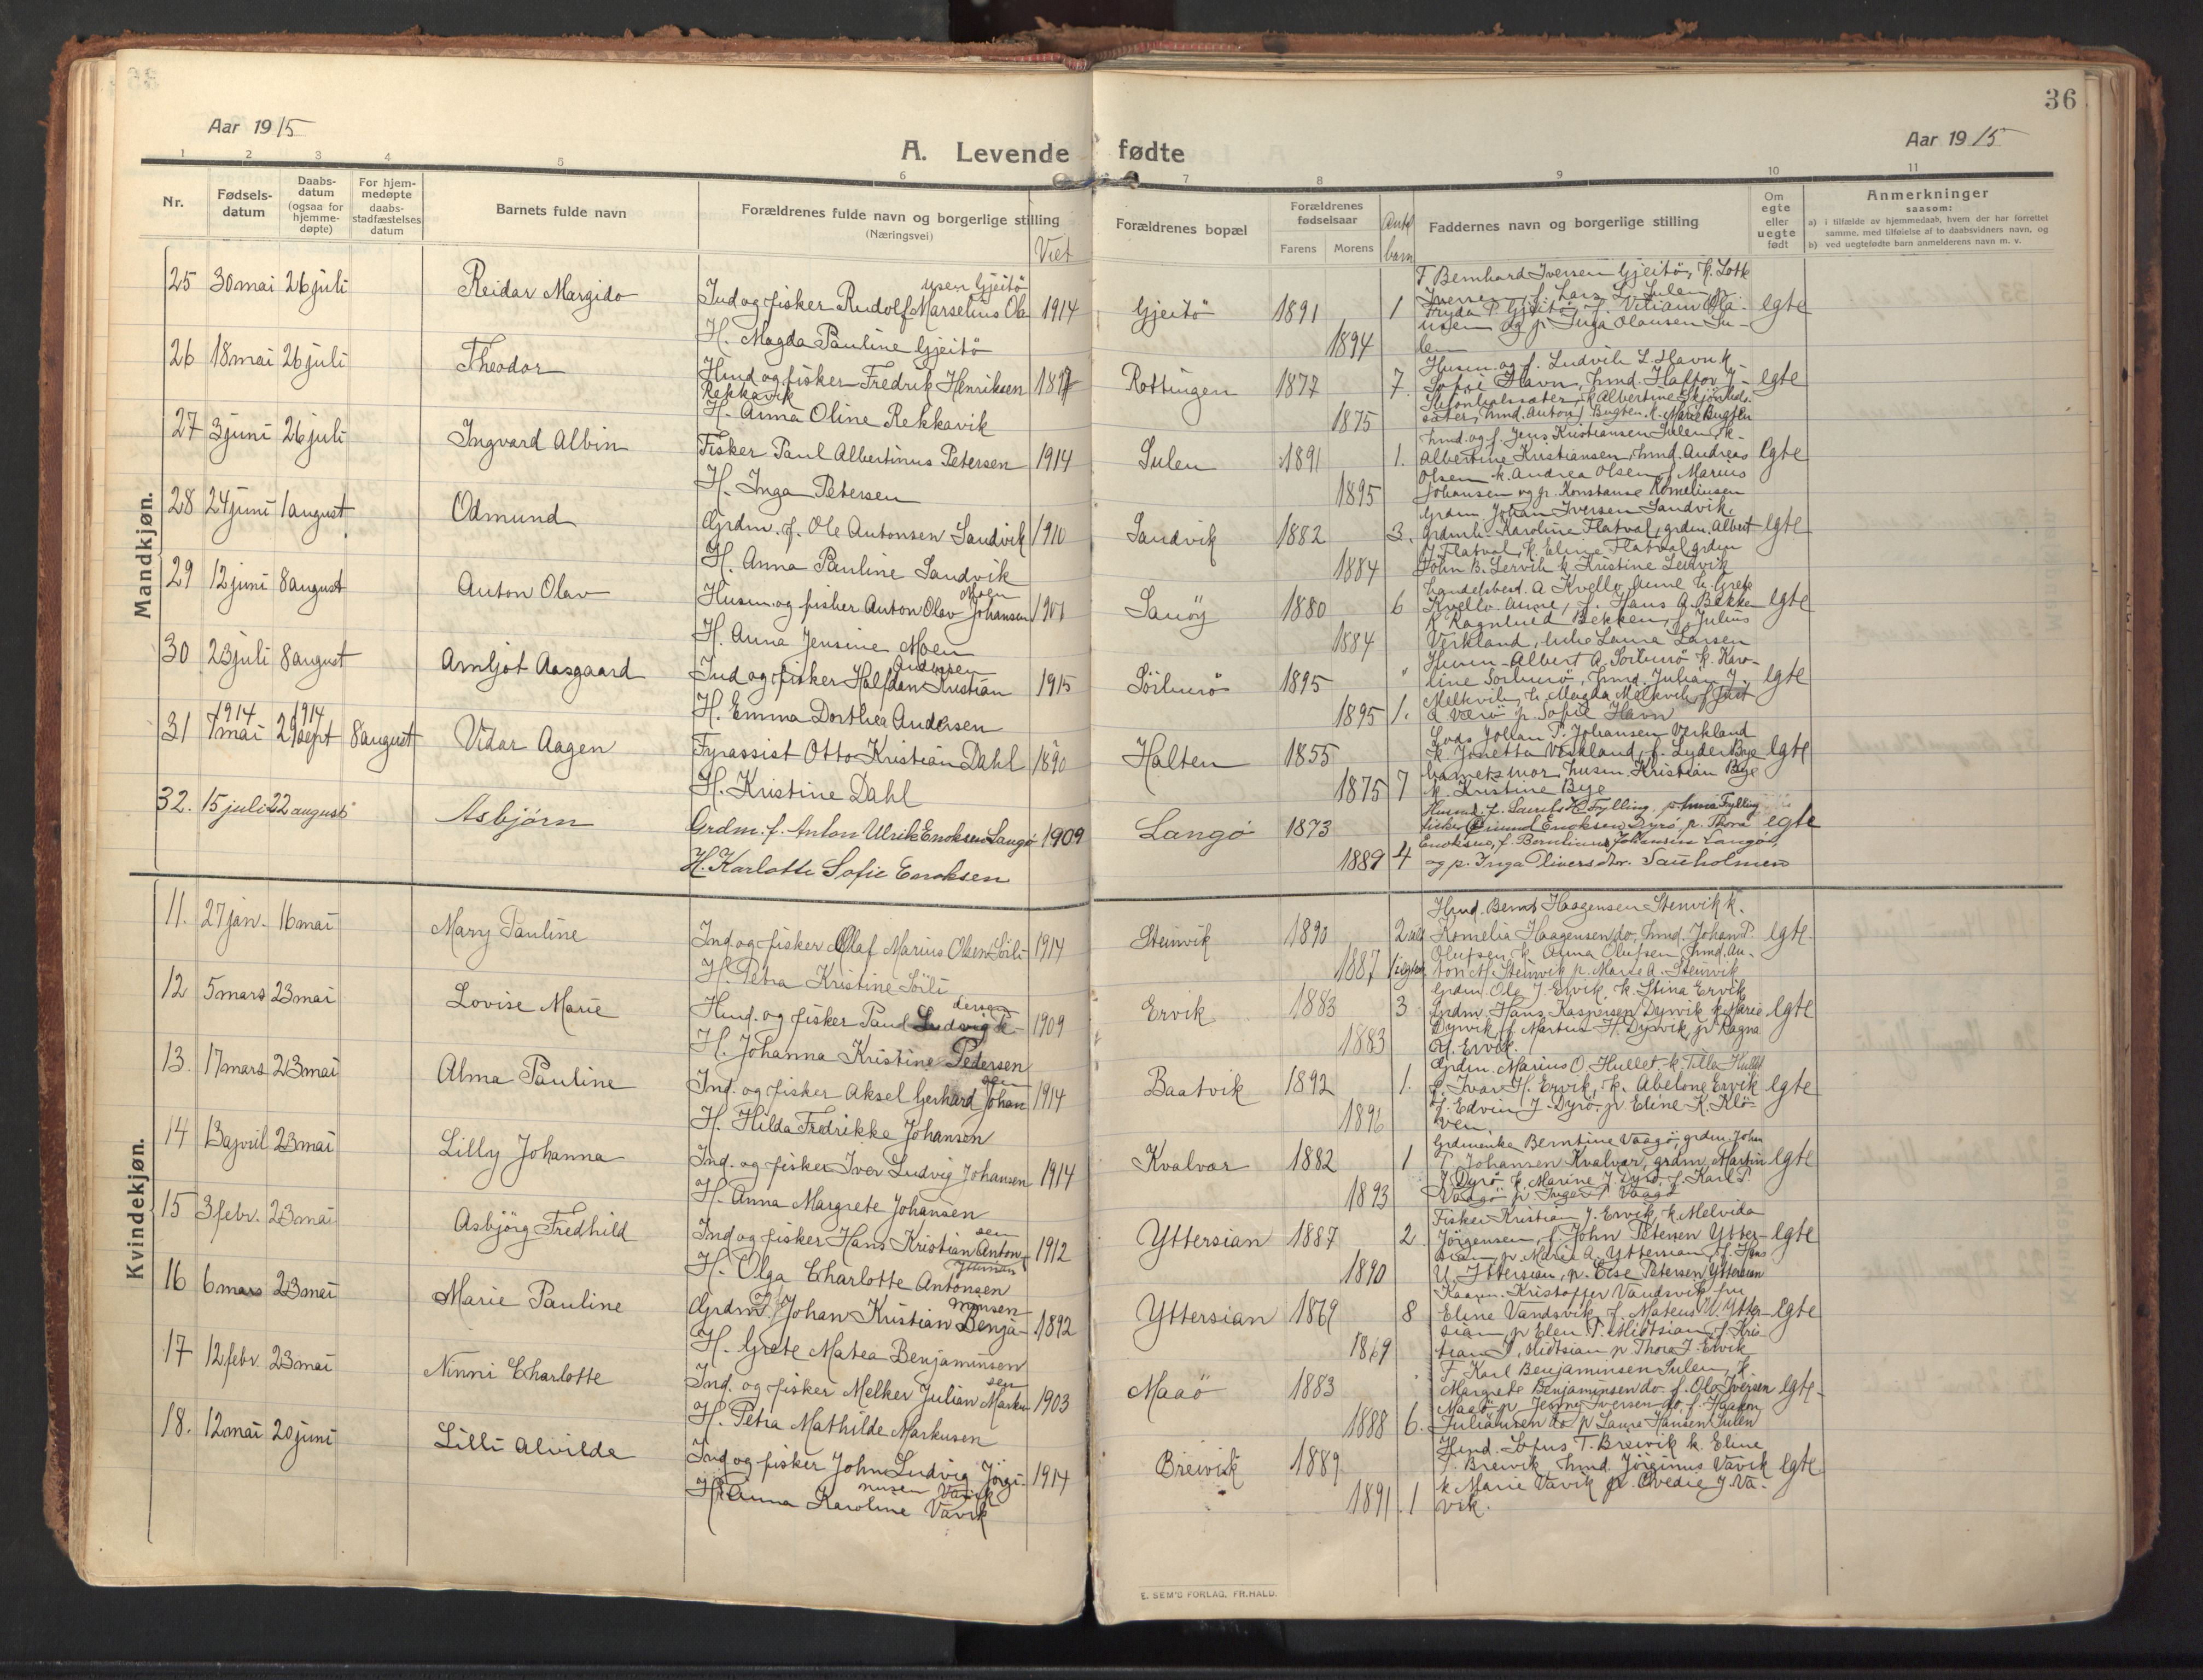 36
Aar 1915
Aar 1915
A. Levende fødte
1 2 3 4 5 6 7 8 9 10 11
Nr.
Fødsels-
datum
Daabs-
datum
(ogsaa for
hjemme-
døpte)
For hjem-
medøpte
daabs-
stadfæstelses
datum
Barnets fulde navn
Forældrenes fulde navn og borgerlige stilling
(Næringsvei)
Viet
Forældrenes bopæl
Forældrenes
fødselsaar
Farens Morens
Ant.
barn
Faddernes navn og borgerlige stilling
Om
egte
eller
uegte
født
Anmerkninger
saasom:
a) i tilfælde av hjemmedaab, hvem der har forrettet
samme, med tilføielse af to daabsvidners navn, og
b) ved uegtefødte barn anmelderens navn m. v.
Mandkjøn.
25 30 mai 26 juli Reidar Margido
usen Gjeitö
Ind og fisker Rudolf Marselius Ola 1914
H. Magda Pauline Gjeitö
Gjeitö 1891 1 egte
1894
F Bernhard Iversen Gjeitö, k. Lotte
Iversen, f. Lars L. Sulen p.
Fryda P. Gjeitö, f. Vitiam Ola-
usen og p Inga Olausen Su-
len
26 18 mai 26 juli Theodor
Hmd og fisker Fredrik Henriksen 1897
Rekkavik
H. Anna Oline Rekkavik
Rottingen 1877 7 egte
1875
Husm. og f. Ludvik L. Havn k.
Sofie Havn, hmd. Haftor J.
k Albertine
sæter, hmd. Anton J Bugten, k. Marie Bugten
27 3 juni 26 juli Ingvard Albin
Fisker Paul Albertinus Petersen 1914
H. Inga Petersen
Sulen 1891 1. egte
1895
hmd. og f. Jens Kristiansen Sulen, k.
Albertine Kristiansen, hmd. Andreas
Olsen k. Andrea Olsen f. Marius
Johansen og p. Konstanse Korneliusen
28 24 juni 1 august Odmund
Grdm. f. Ole Antonsen Sandvik 1910
H. Anna Pauline Sandvik
Sandvik 1882 3. egte
1884
Grdm Johan Iversen Sandvik,
grdmk. Karoline Flatval, grdm. Albert
J Flatval, k. Eline Flatval grdm
John B. Lervik k Kristine Lervik
29 12 juni 8 august Anton Olav
Moen
Husm. og fisker Anton Olav Johansen 1901
H. Anna Jensine Moen
Sanöy 1880 6 egte
1884
Handelsbest. A Kvello, Aune k. Grete
Kvello Aune, f. Hans A. Bekken
k Ragnhild Bekken, f. Julius
Verkland, Laura Larsen
30 23 juli 8 august Arnljot Aasgaard
Andersen
Ind og fisker Halfdan Kristian 1915
H. Emma Dorthea Andersen
Sörburö 1895 " egte
1895 1.
Husm. Albert A. Sörburö k. Karo-
line Sörburö, hmd. Julian J.
Melkvik, k. Magda Melkvik, f. Just
A Værö p. Sofie Havn
1914 1914
31 7 mai 29 sept 8 august Vidar Aagen
Fyrassist Otto Kristian Dahl 1890
H. Kristine Dahl
Halten 1855 egte
1875 7
Lods Johan P. Johansen Verkland
k. Jonetta Verkland, f. Lyder Bye
barnets mor husm. Kristian Bye
k. Kristine Bye
32. 15 juli 22 august Asbjørn
Grdm. f. Anton Ulrik Enoksen Langö 1909
H. Karlotte Sofie Enoksen
Langö 1873 egte
1889 4
Husm. f. Laurits H Fylling, p Anna Fylling
fisker Eimund Enoksen Dyrö, p. Thora
Enoksen, f. Bernlinus Johansen Langö,
og p. Inga Oliversdtr. Sauholmen
Kvindekjøn.
11. 27 jan. 16 mai Mary Pauline
Ind og fisker Olaf Marius Olsen Sörli 1914
H. Petra Kristine Sörli
Stenvik 1890 2 egte.
1887
Hmd. Bernt Haagensen Stenvik k.
Kornelia Haagensen do, hmd. Johan P.
Olufsen k. Anna Olufsen, hmd. An-
ton M Stenvik p. Marie A. Stenvik
12 5 mars 23 mai Lovise Marie
dersen
Hmd. og fisker Paul Ludvig Pe- 1909
H. Johanna Kristine Pedersen
Ervik 1883 3 egte
1883
Grdm Ole J. Ervik, k. Stina Ervik
Grdm. Hans Kaspersen Dyrvik k. Marie
Dyrvik, f. Martin H. Dyrvik, p Ragna
M. Ervik.
13. 17 mars 23 mai Alma Pauline
sen
Ind. og fisker Aksel Gerhard Johan 1914
H. Hilda Fredrikke Johansen
Baatvik 1892 1. egte
1896
Grdm. Marius O. Hullet, k. Tilla Hullet
f. Ivar H. Ervik, k. Abelone Ervik
f. Edvin J. Dyrö, p. Eline K. Klö-
ven.
14 13 april 23 mai Lilly Johanna
Ind. og fisker Iver Ludvig Johansen 1914
H. Anna Margrete Johansen
Kvalvær 1882 1 egte
1893
Grdmenke Berntine Vaagö, grdm. John
P. Johansen Kvalvær, grdm. Martin
J Dyrö k. Marine J. Dyrö, f. Karl P.
Vaagö p. Inga P Vaagö
15 3 febr. 23 mai Asbjörg Fredhild
sen
Ind og fisker Hans Kristian Anton 1912
H. Olga Charlotte Antonsen
Yttersian 1887 2 egte
1890
Fisker Kristian J. Ervik, k. Melvida
Jörgensen, f. John Petersen Ytter-
sian, p. Marie A. Yttersian, f. Hans
U. Yttersian, p. Else Petersen Yttersian
16 6 mars 23 mai Marie Pauline
minsen
Grdm. Johan Kristian Benja- 1892
H. Grete Matea Benjaminsen
Yttersian 1869 8 egte
1869
Kaarm. Kristoffer Vandsvik fru
Eline Vandsvik, f. Mateus U. Ytter-
sian, p Elen P. Midtsian, f. Kris-
tian P. Midtsian p Thora J. Ervik
17 12 febr. 23 mai Ninni Charlotte
sen
Ind. og fisker Melker Julian Marku 1903
H. Petra Mathilde Markusen
Maaö 1883 egte
1888 6.
F. Karl Benjaminsen Sulen, k.
Margrete Benjaminsen do. f. Ole Iversen
Maaö p Jenny Iversen do, f. Haakon
Juliansen do p Laura Hansen Sulen
18. 12 mai 20 juni Lilli Alvilde
Ind og fisker John Ludvig Jörgi- 1914
nusen Vavik
H. Anna Karoline Vavik
Breivik 1889 egte
1891 1
Hmd. Lofus T. Breivik k. Eline
T. Breivik, hmd. Jörginus Vavik
k Marie Vavik p. Ovedie J. Va-
vik.
E. SEM'S FORLAG, FR.HALD.